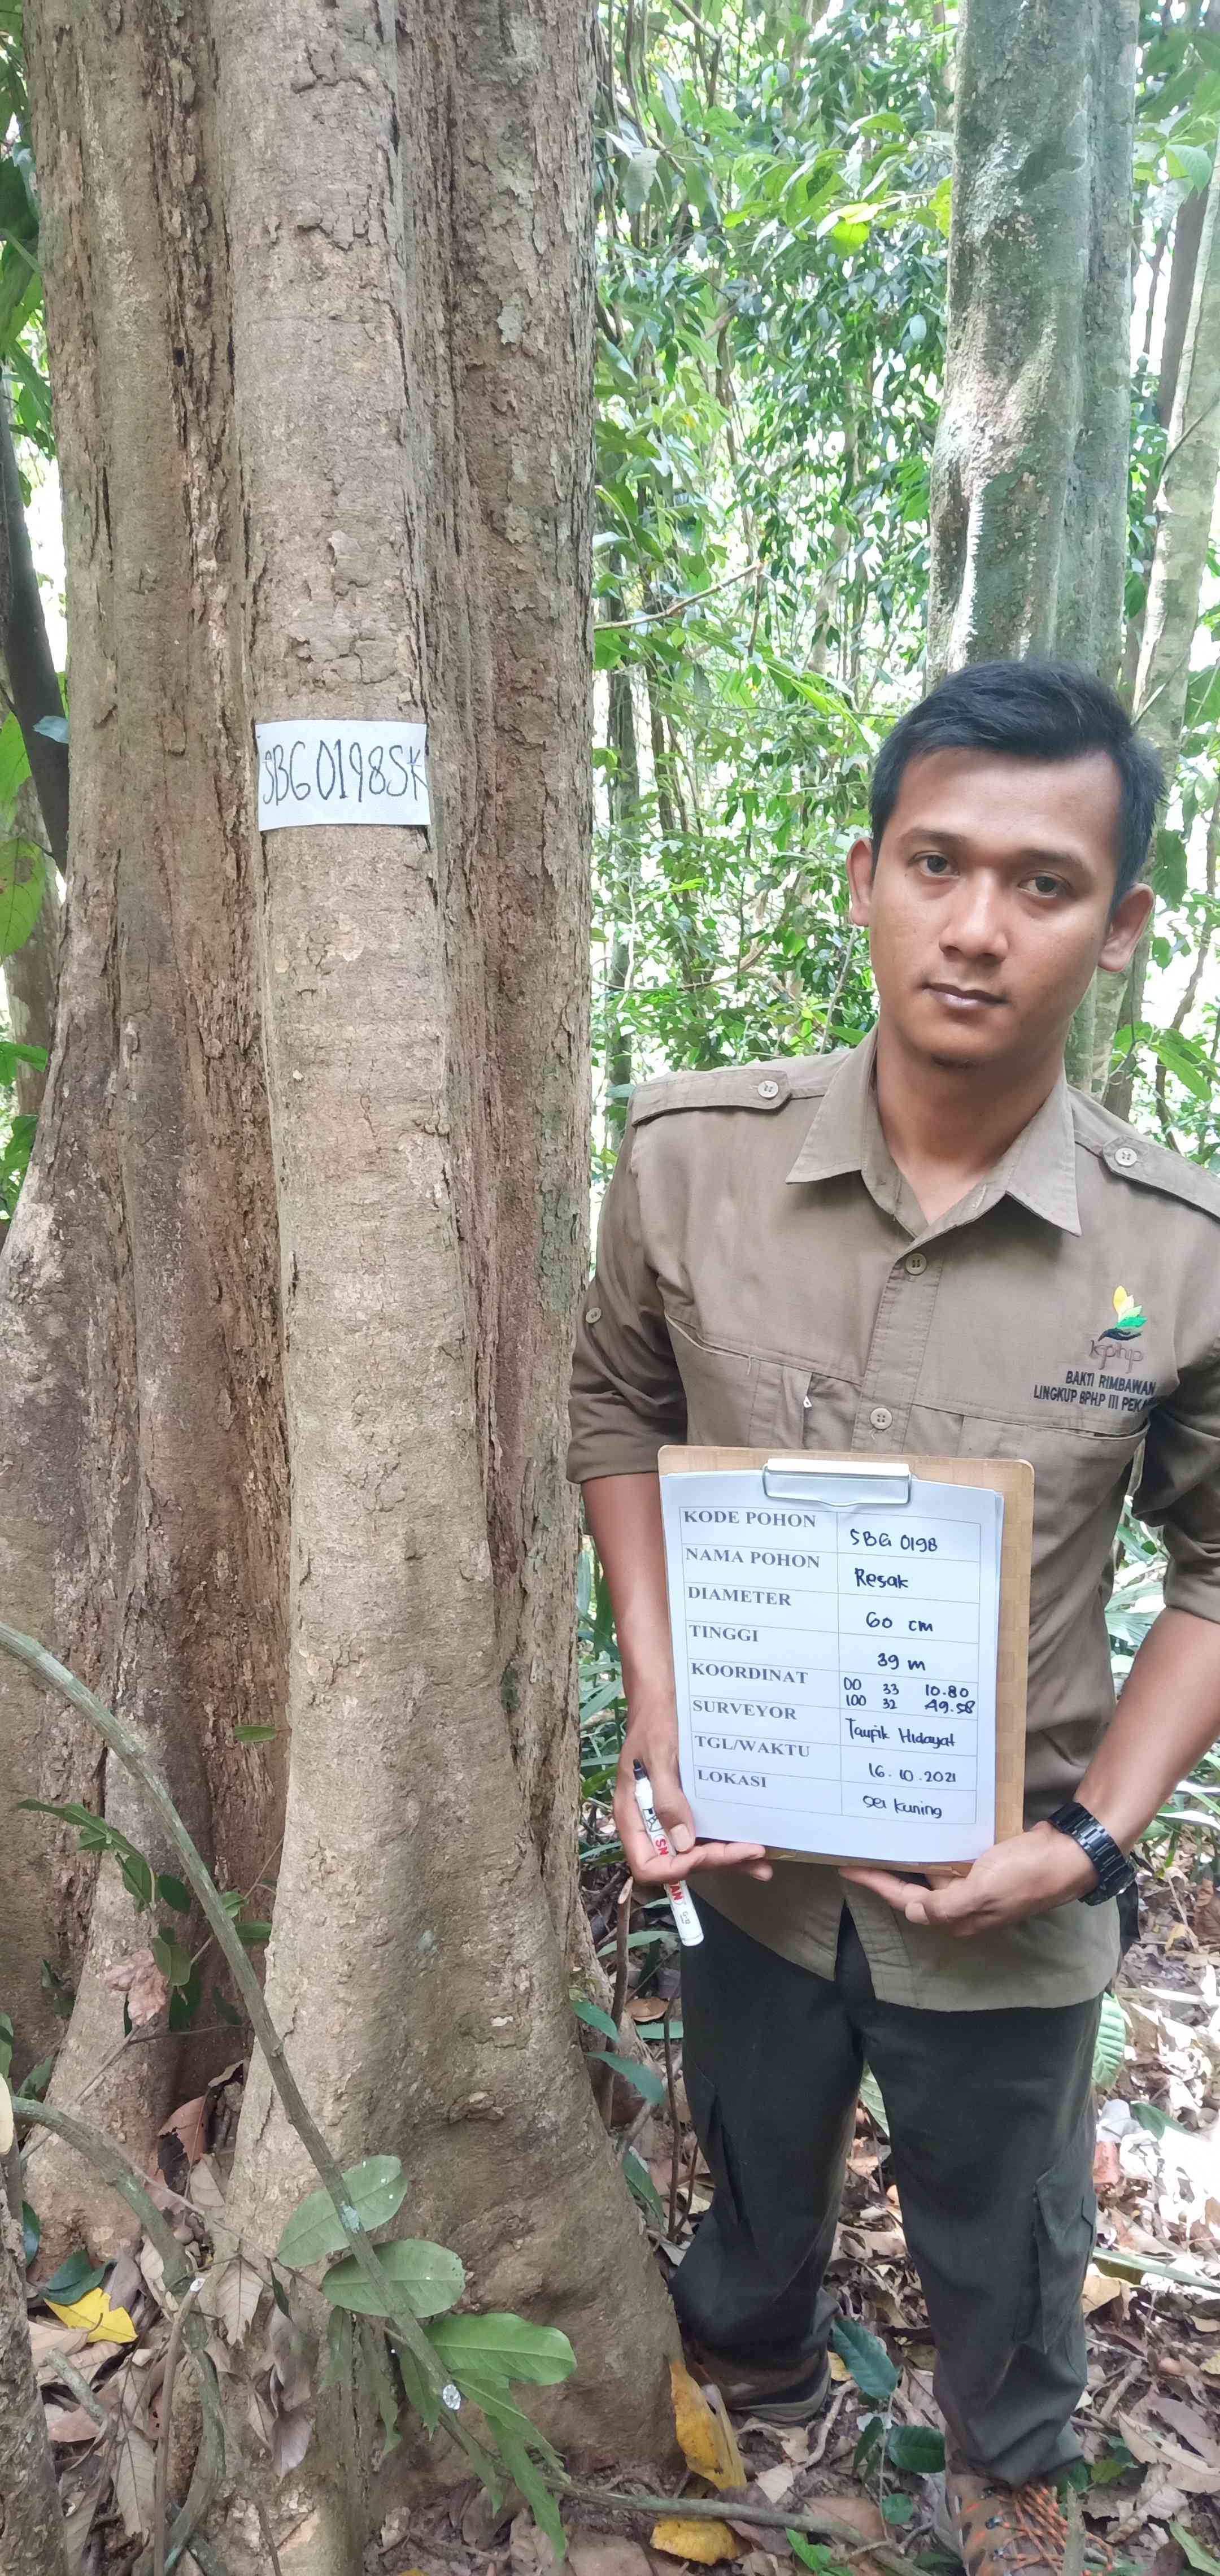 SBG0198SK
kphp
BAKTI RIMBAWAN
LINGKUP BPHP III
KODE POHON SBG 0198
NAMA POHON Resak
DIAMETER 60 cm
TINGGI 39 m
KOORDINAT 00 33 10.80
100 32 49.58
SURVEYOR Taufik Hidayat
TGL/WAKTU 16.10.2021
LOKASI sei kuning
SN
MAN